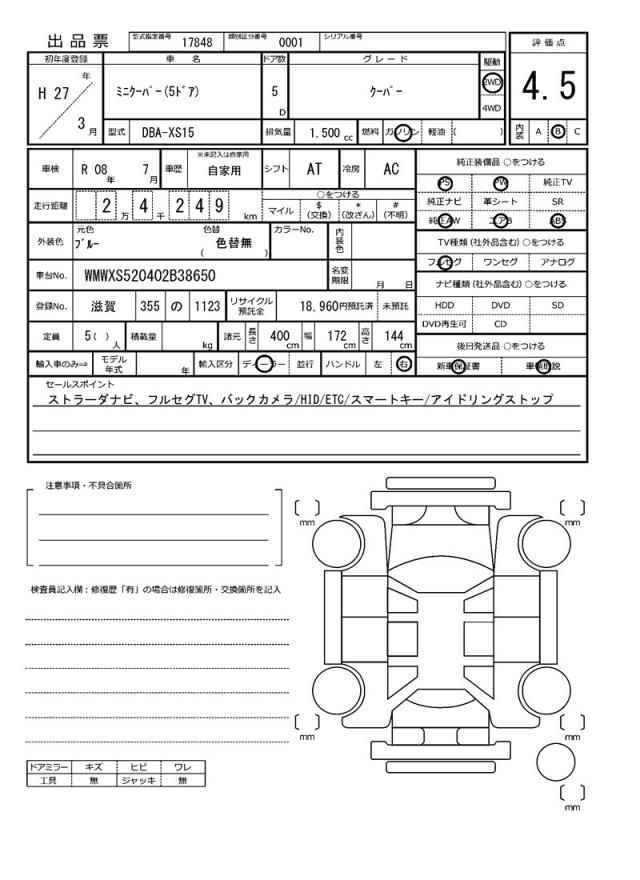 出品票 型式指定番号 17848 類別区分番号 0001 シリアル番号
初年度登録 車 名 ドア数 グレード 駆動 評価点
H 27 年 3 月 ミニクーパー(5ドア) 5 D クーパー 2WD 4WD 4.5
型式 DBA-XS15 排気量 1.500 cc 燃料 ガソリン 軽油 ( ) 内装 A B C
車検 R 08 年 7 月 車歴 ※未記入は自家用 自家用 シフト AT 冷房 AC 純正装備品 ○をつける
PS PW 純正TV
走行距離 2 万 4 千 2 4 9 km ○をつける 純正ナビ 革シート SR
マイル $(交換) *(改ざん) #(不明) 純正AW エアB ABS
外装色 元色 ブルー 色替 ( 色替無 ) カラーNo. 内装色 TV種類 (社外品含む) ○をつける
フルセグ ワンセグ アナログ
車台No. WMWXS520402B38650 名変期限 月 日 ナビ種類 (社外品含む) ○をつける
登録No. 滋賀 355 の 1123 リサイクル預託金 18,960円預託済 未預託 HDD DVD SD
DVD再生可 CD
定員 5( ) 人 積載量 kg 諸元 長さ 400 cm 幅 172 cm 高さ 144 cm 後日発送品 ○をつける
輸入車のみ⇒ モデル年式 年 輸入区分 ディーラー 並行 ハンドル 左 右 新車保証書 車輌取説
セールスポイント
ストラーダナビ、フルセグTV、バックカメラ/HID/ETC/スマートキー/アイドリングストップ
注意事項・不具合箇所
mm mm
検査員記入欄：修復歴「有」の場合は修復箇所・交換箇所を記入
mm mm
ドアミラー キズ ヒビ ワレ
工具 無 ジャッキ 無
mm